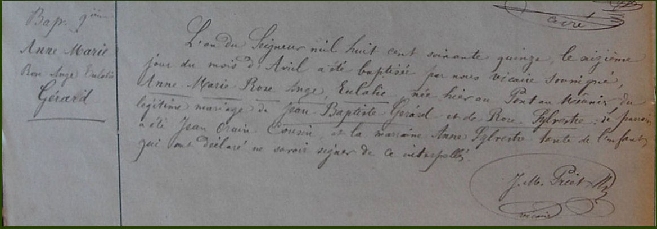 curé
Bap. 9ème
Anne Marie
Rose Ange Eulalie
Gérard
L'an du Seigneur mil huit cent soixante quinze, le dixième
jour du mois d'Avril a été baptisée par nous vicaire soussigné,
Anne Marie Rose Ange Eulalie, née hier au Pont au, du
légitime mariage de Jean Baptiste Gérard et de Rose Sylvestre; le parrain
a été Jean Cousin, et la marraine Anne Sylvestre tante de l'enfant,
qui ont déclaré ne savoir signer de ce interpellés.
J. M.
vicaire